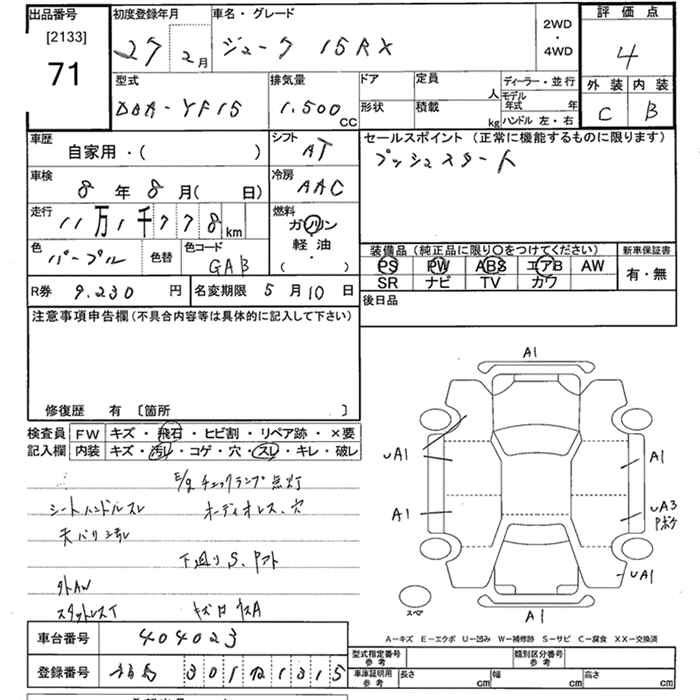 出品番号 初度登録年月 車名・グレード 2WD・4WD 評価点
[2133]
71 27 2月 ジューク 15RX 4
型式 排気量 ドア 定員 人 ディーラー・並行 外装 内装
DBA-YF15 1.500CC 形状 積載 kg モデル年式 年 C B
ハンドル 左・右
車歴 自家用・( ) シフト AT セールスポイント (正常に機能するものに限ります)
プッシュスタート
車検 8年8月(日) 冷房 AAC
走行 11万1千778km 燃料 ガソリン
軽油
・
( )
色 パープル 色替 色コード GAB 装備品 (純正品に限り○をつけてください) 新車保証書
PS PW ABS エアB AW 有・無
SR ナビ TV カワ
R券 9.230円 名変期限 5月10日 後日品
注意事項申告欄 (不具合内容等は具体的に記入して下さい)
修復歴 有 [箇所 ]
検査員 FW キズ・飛石・ヒビ割・リペア跡・×要
記入欄 内装 キズ・汚レ・コゲ・穴・スレ・キレ・破レ
E/gチェックランプ点灯
シートハンドルスレ オーディオレス、穴
天バリ汚れ
下廻りS、
外AW
スタットレスT
A1
uA1 A1
A1 uA3
Pポケ
uA1
スペア A1
A-キズ E-エクボ U-凹み W-補修跡 S-サビ C-腐食 XX-交換済
車台番号 404023
型式指定番号 参考 類別区分番号 参考
登録番号 福島 301 1315
車庫証明用 参考 長さ cm 幅 cm 高さ cm